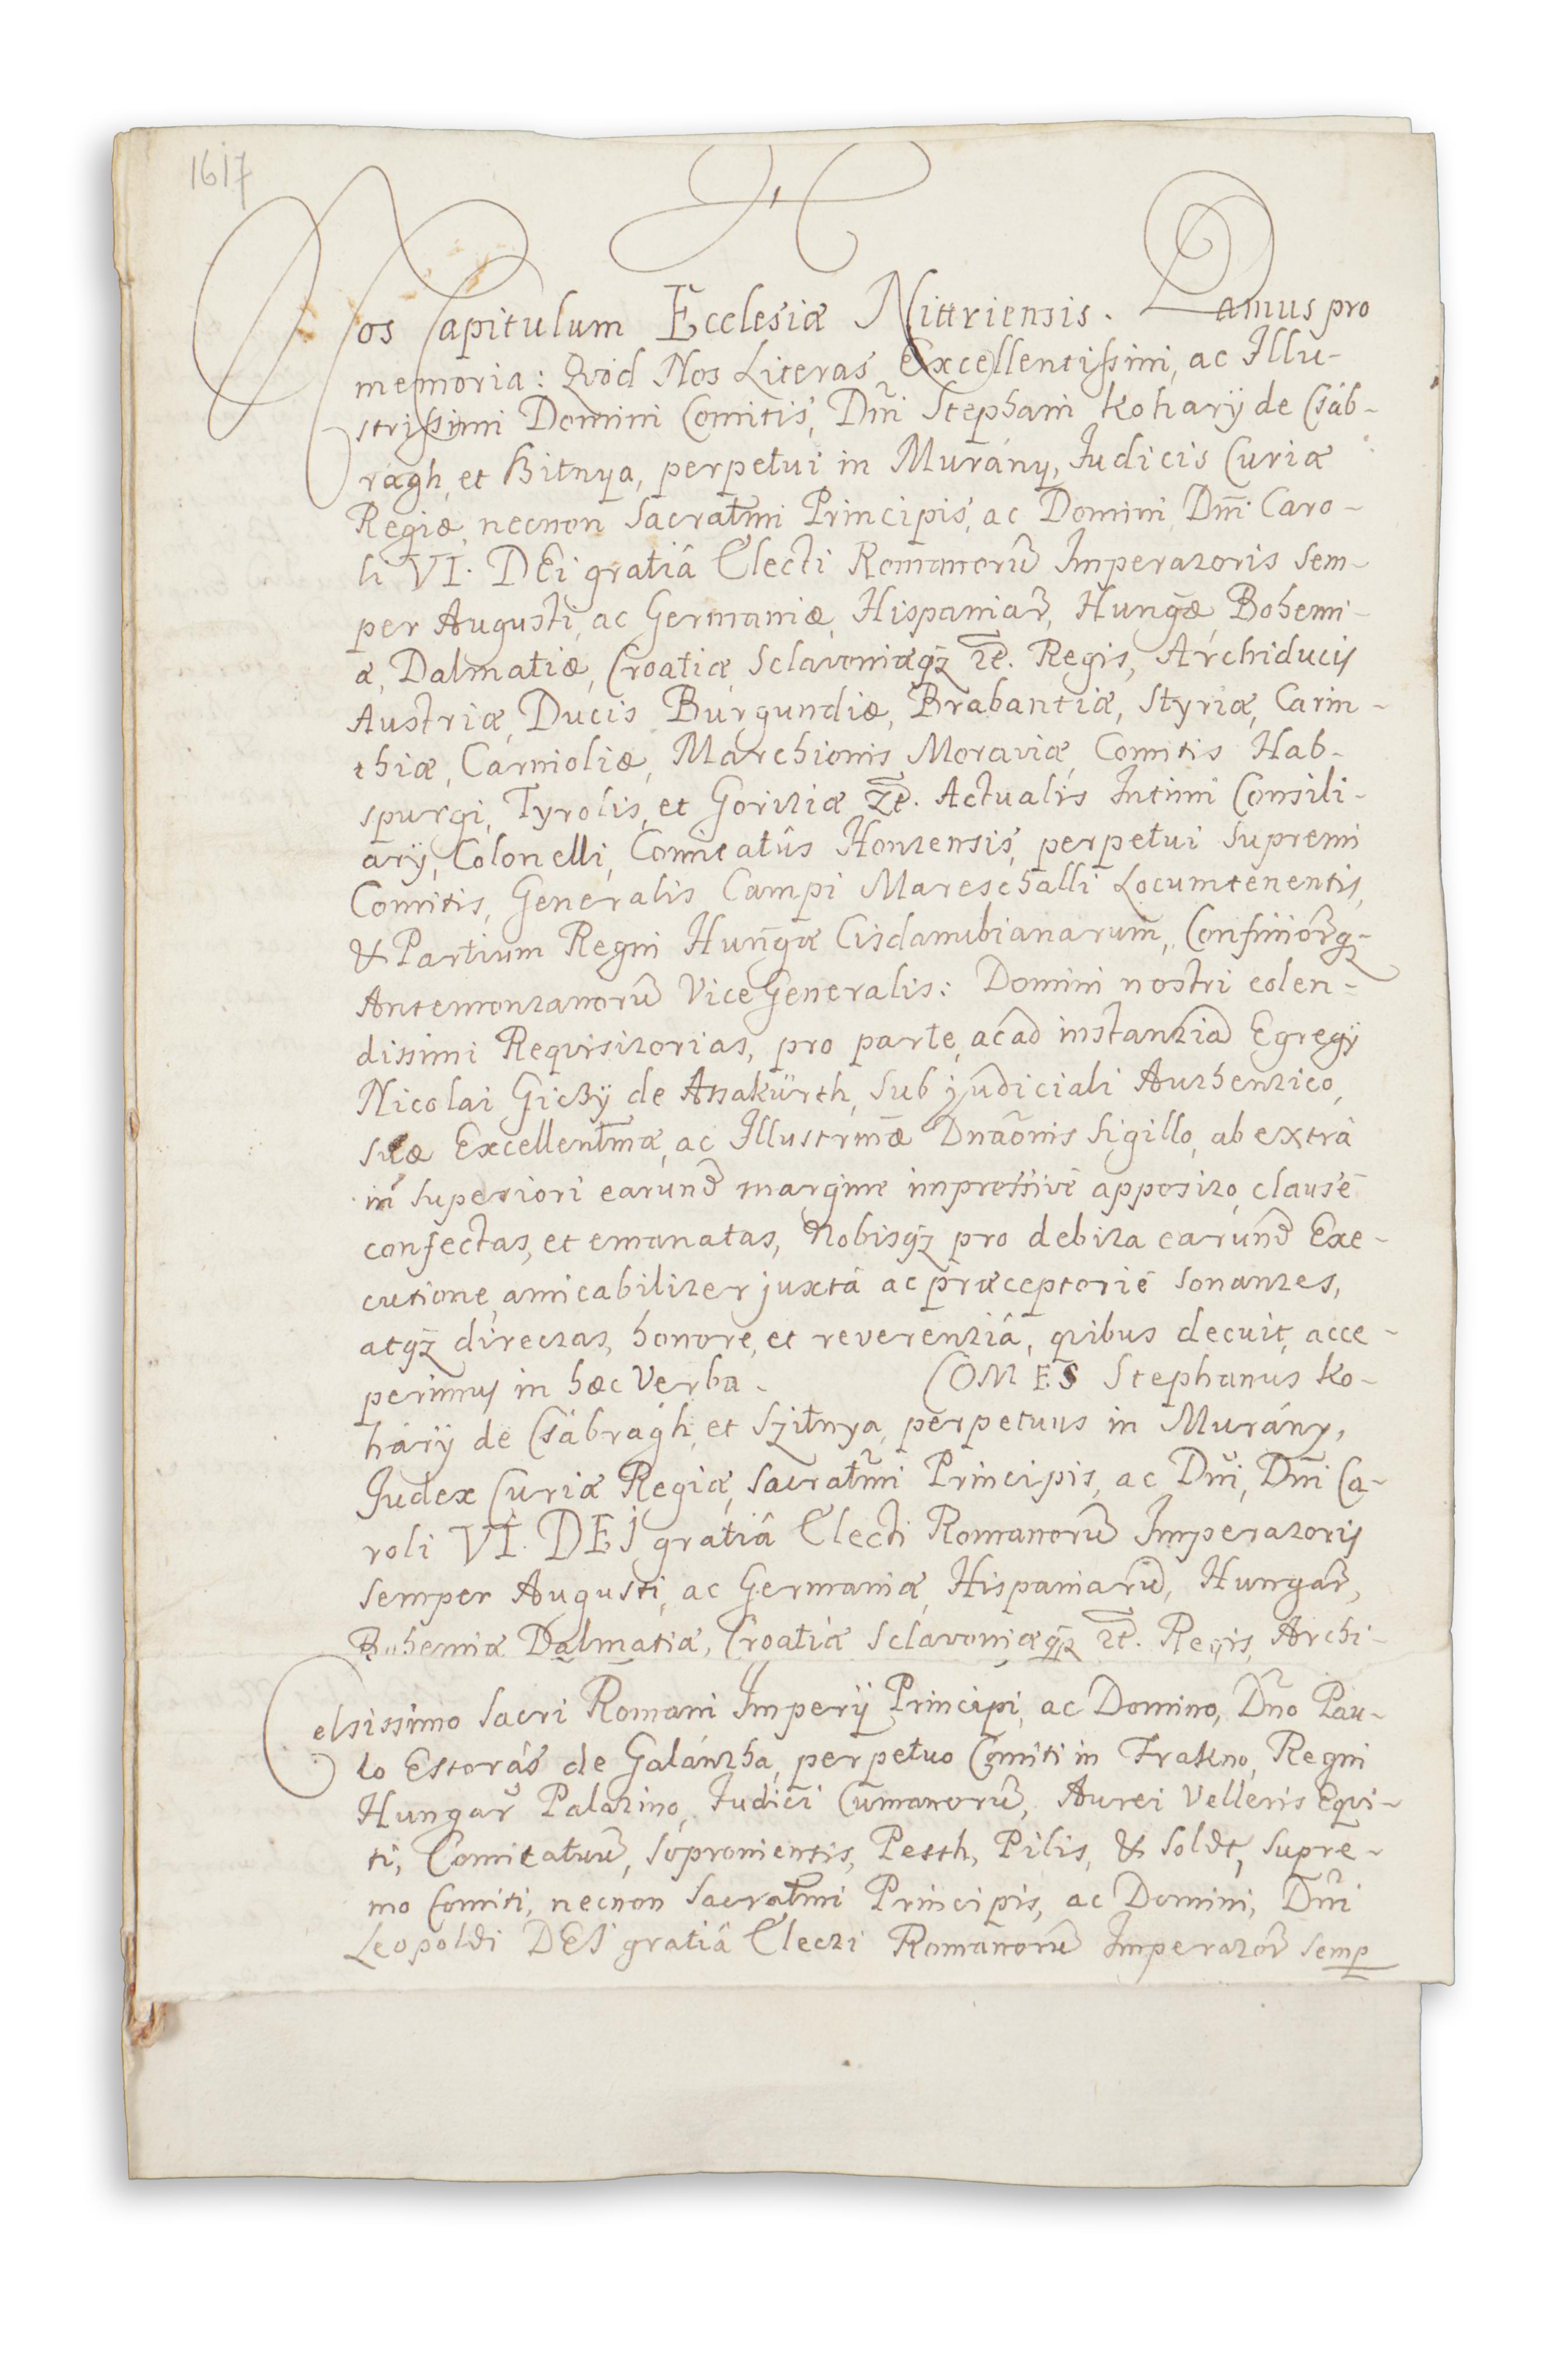 1617
Nos Capitulum Ecclesiæ Nittriensis. Damus pro
memoria: Qvod Nos Literas Excellentissimi, ac Illu-
strissimi Domini Comitis, Dn̄i Stephani Koharÿ de Csáb-
rágh, et Bitnya, perpetui in Murány, Judicis Curiæ
Regiæ, necnon Sacrat͞mi Principis, ac Domini, Dn̄i Caro-
li VI. DEi gratiâ Electi Romanorū Imperatoris Sem-
per Augusti, ac Germaniæ, Hispaniar̄, Hung̃æ Bohemi-
æ, Dalmatiæ, Croatiæ, Sclavoniæq̄ꝫ ꝛc̄. Regis, Archiducis
Austriæ, Ducis Burgundiæ, Brabantiæ, Styriæ, Carin-
thiæ, Carnioliæ, Marchionis Moraviæ, Comitis Hab-
spurgi, Tyrolis, et Goritiæ ꝛc̄. Actualis Intimi Consili-
arÿ, Colonelli, Comitatûs Hontensis, perpetui Supremi
Comitis, Generalis Campi Mareschalli Locumtenentis,
& Partium Regni Hung̃æ Cisdanubianarum̄, Confiniōrq̄ꝫ-
Antemontanorū ViceGeneralis: Domini nostri colen-
dissimi Requisitorias, pro parte, ac ad instantiā Egregÿ
Nicolai Giczÿ de Assakürth, sub judiciali Authentico,
suæ Excellent͞mæ, ac Illustrm̄æ Dnāōnis Sigillo, ab extrà
in superiori earund̄ margine impressivè apposito, clausè
confectas, et emanatas, Nobisq̄ꝫ pro debita earund̄ Exe-
cutione, amicabiliter juxtà ac præceptoriè sonantes,
atq̄ꝫ directas, honore, et reverentiâ, qvibus decuit, acce-
perimus in hæc Verba. COMES Stephanus Ko-
hárÿ de Csábrágh, et Szitnya, perpetuus in Murány,
Judex Curiæ Regiæ, Sacrat͞mi Principis, ac Dn̄i, Dn̄i Ca-
roli VI. DEJ gratiâ Electi Romanorū Imperatoris
Semper Augusti, ac Germaniæ, Hispaniarū, Hungar̄,
Bohemiæ Dalmatiæ, Croatiæ Sclavoniæq̄ꝫ ꝛc̄. Regis, Archi-
Celsissimo Sacri Romani Imperÿ Principi, ac Domino, Dn̄o Pau-
lo Estorás de Galántha, perpetuo Comiti in Frakno, Regni
Hungar̄ Palatino, Judici Cumanorū, Aurei Velleris Equi-
ti, Comitatuū, Soproniensis, Pesth, Pilis, & Soldt, Supre-
mo Comiti, necnon Sacrat͞mi Principis, ac Domini, Dn̄i
Leopoldi DEJ gratiâ Electi Romanorū Imperator̄ Semp̱